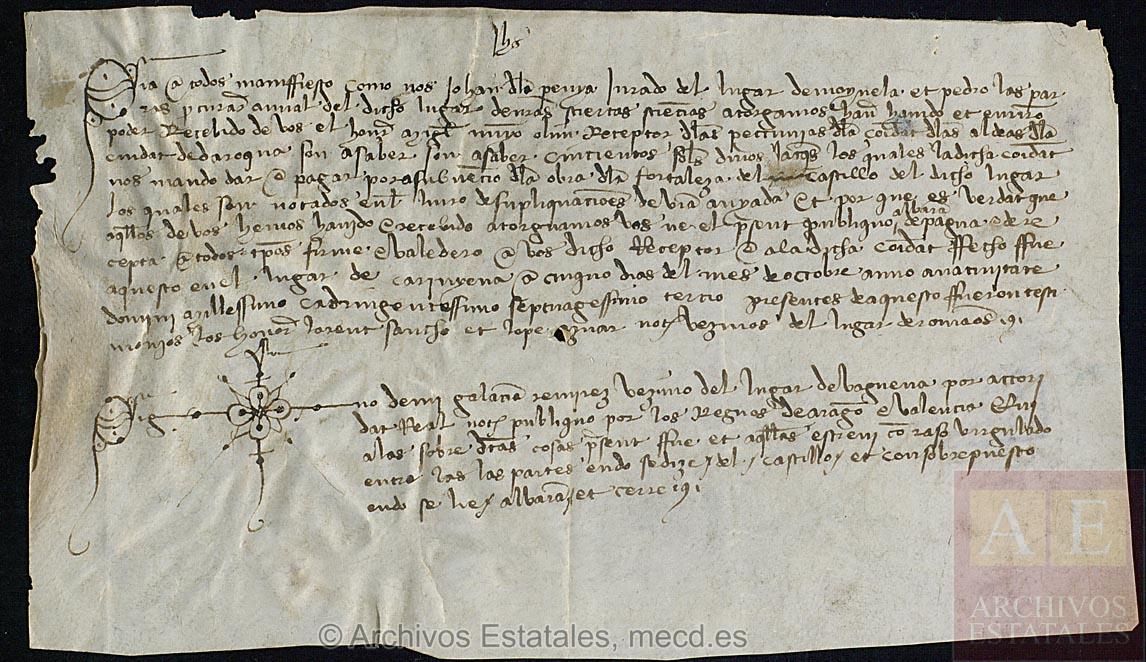 Jhs
Sia a todos maniffiesto como nos Johan dla penya Jurado del lugar de monuela et pedro las par
ras procurador annual del dicho lugar de nras sciertas sciencias atorgamos hauer hauido et en nro
poder Recebido de vos el honor Receptor dlas peccunias dla Coidat dlas aldeas dla
ciudat de daroqua son asaber son asaber cincientos sls dineros Jaqs los quales la dicha Coidat
nos mando dar e pagar por asubuencio dla obra dla fortaleza del castillo del dicho lugar
los quales son notados enl libro de supliquaciones de Et por que es verdat que
aqllos de vos hemos hauido e recebido atorguamos vos ne el present publiquo albara de pagua e de re
cepta a todos tpos firme e valedero a vos dicho Receptor e ala dicha Coidat ffecho ffue
aquesto en el lugar de Carinyena a cinquo dias del mes de octobre anno anatiuitate
domini Millessimo Cadringentessimo septuagessimo tercio presentes de aquesto ffueron testi
monios los honor lorent sancho et lope not vezinos del lugar de
Sig no de mi galacian remirez vezino del lugar de baguena por actori
dat Real not publiquo por los Regnos de aragon e valencia Qui
a las sobre dtas cosas present ffue et aqllas escreui con raso virgulado
entre las las partes endo se dize del castillo et con sobrepuesto
endo se lie albara et cerre
© Archivos Estatales, mecd.es
AE
ARCHIVOS
ESTATALES